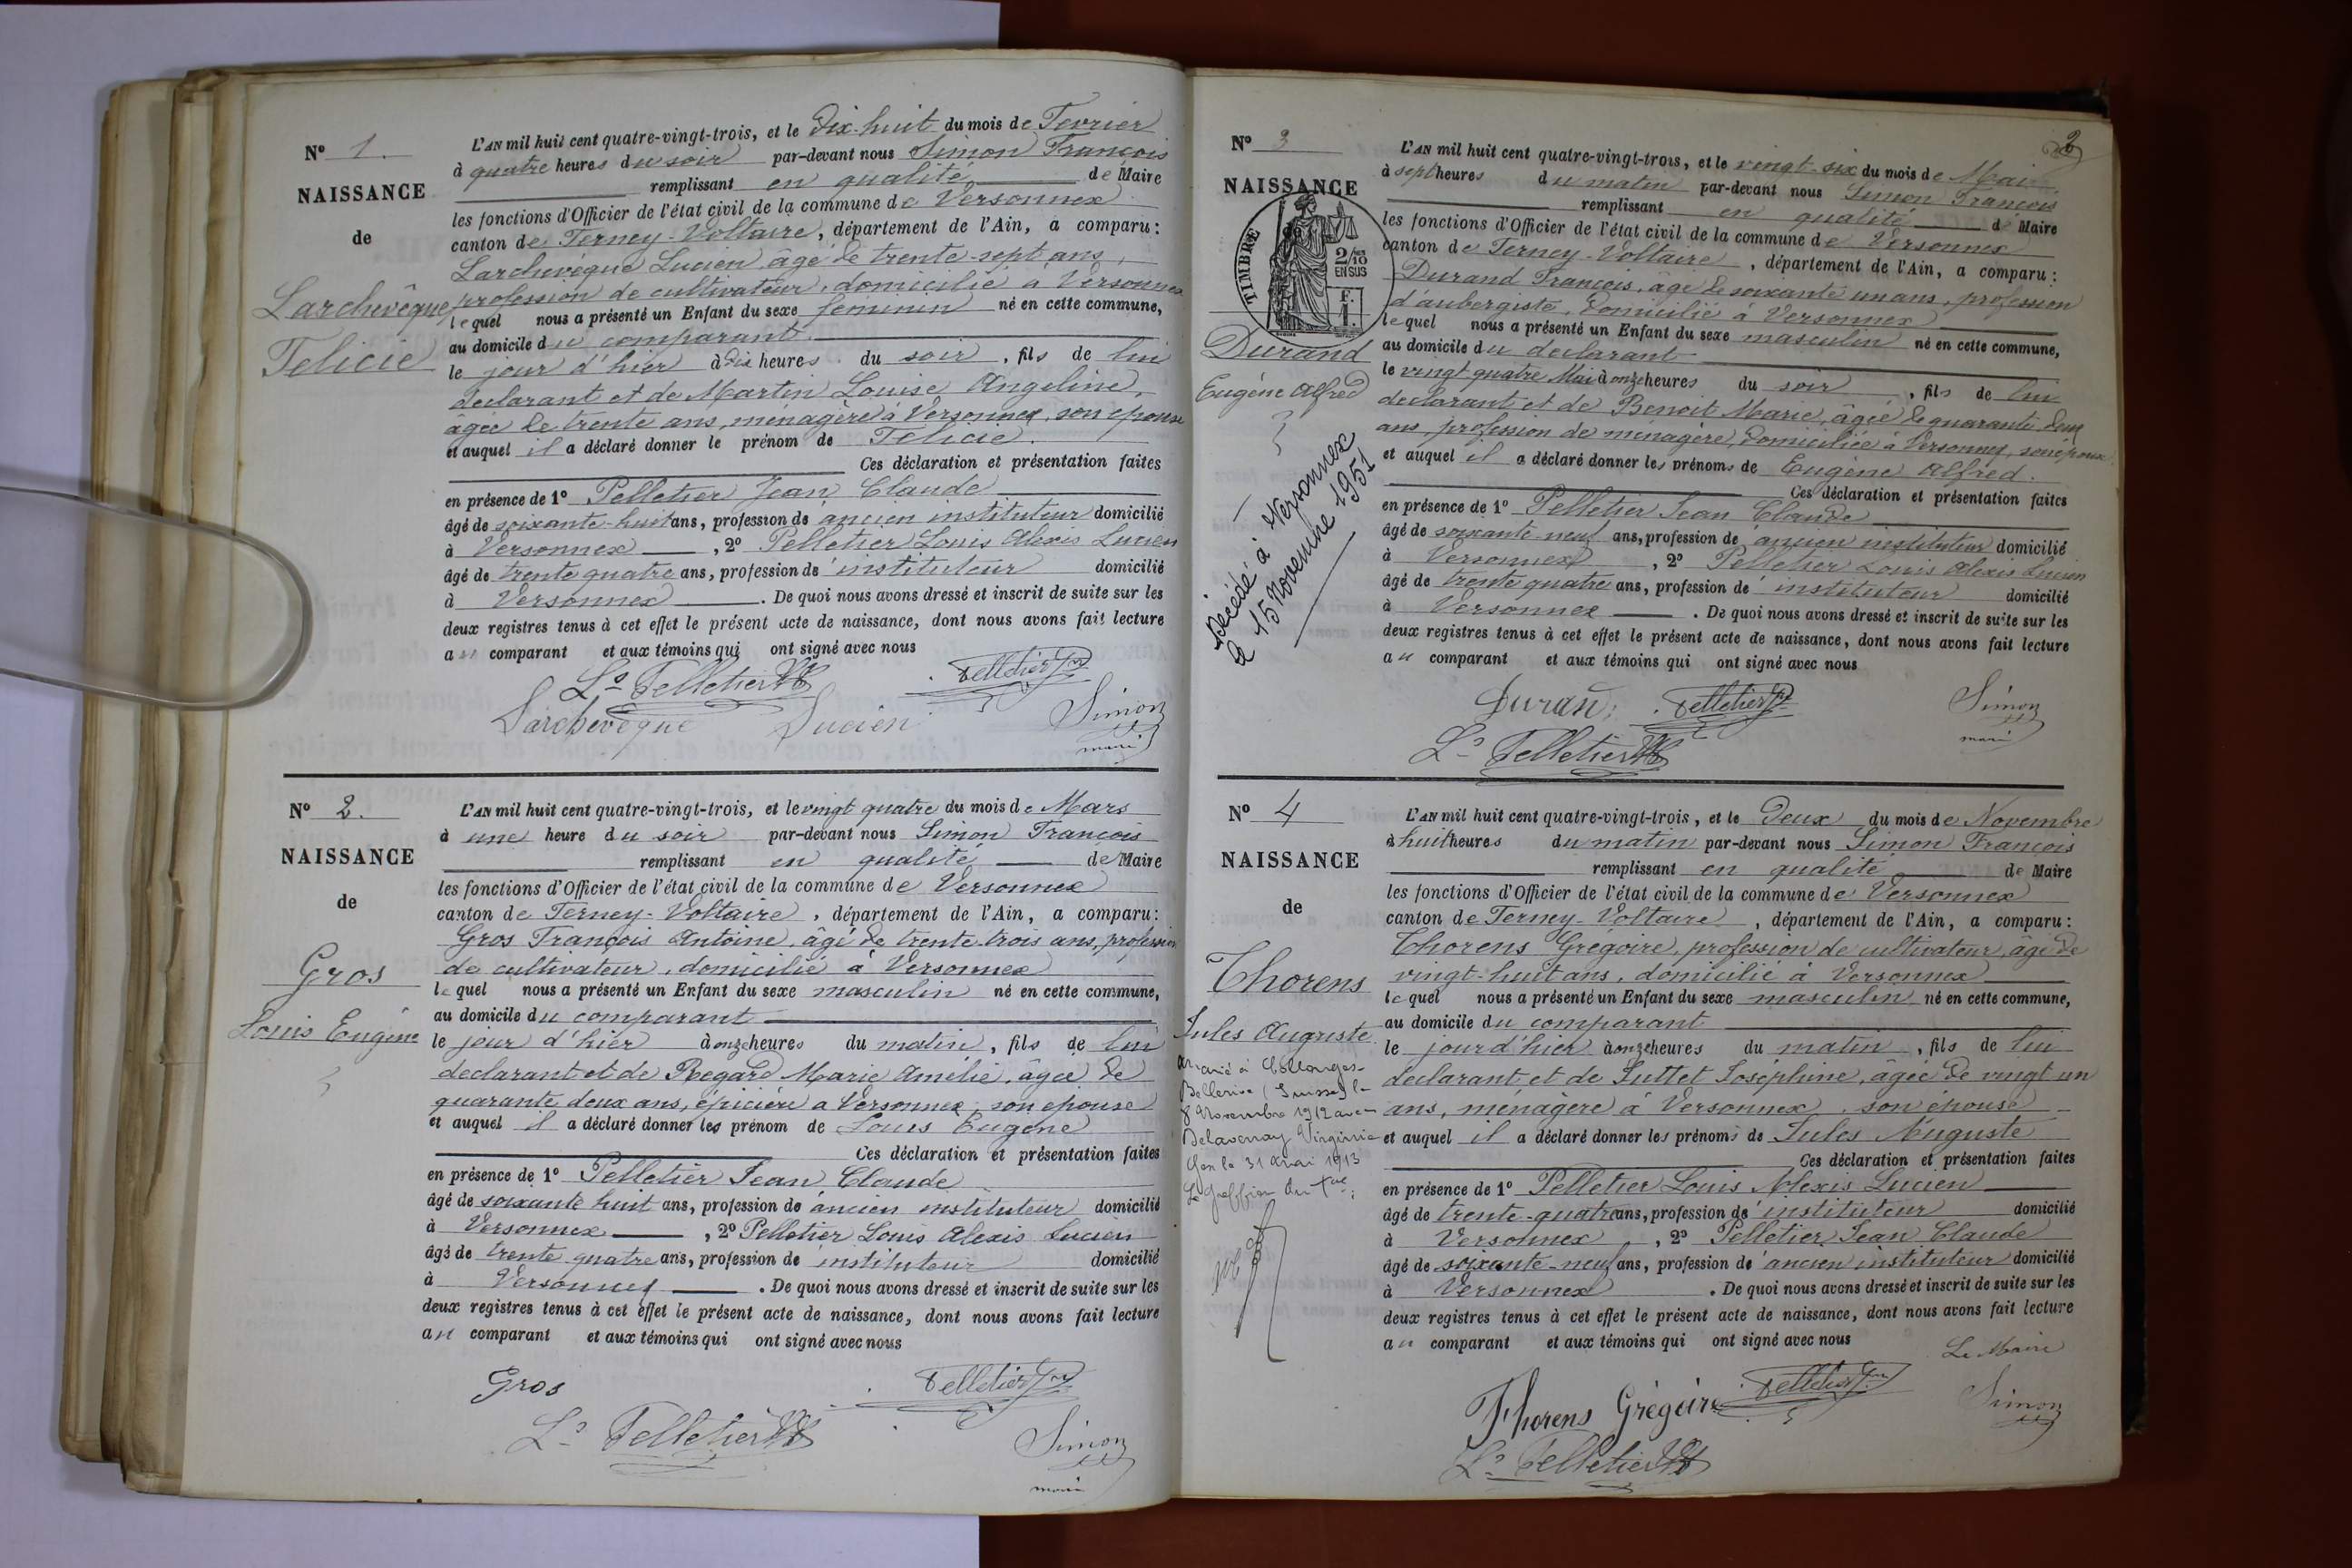 N° 1.
NAISSANCE
de
Larchevêque
Félicie
L'AN mil huit cent quatre-vingt-trois, et le Dix-huit du mois de Février
à quatre heures du soir par-devant nous Simon François
remplissant en qualité de Maire
les fonctions d'Officier de l'état civil de la commune de Versonnex
canton de Ferney-Voltaire, département de l'Ain, a comparu :
Larchevêque Lucien âgé de trente-sept ans,
profession de cultivateur, domicilié à Versonnex
lequel nous a présenté un Enfant du sexe féminin né en cette commune,
au domicile du comparant
le jour d'hier à dix heures du soir, fils de lui
déclarant et de Martin Louise Angeline,
âgée de trente ans, ménagère à Versonnex, son épouse
et auquel il a déclaré donner le prénom de Félicie.
Ces déclaration et présentation faites
en présence de 1° Pelletier Jean Claude
âgé de soixante-huit ans, profession de ancien instituteur domicilié
à Versonnex, 2° Pelletier Louis Alexis Lucien
âgé de trente quatre ans, profession de instituteur domicilié
à Versonnex. De quoi nous avons dressé et inscrit de suite sur les
deux registres tenus à cet effet le présent acte de naissance, dont nous avons fait lecture
au comparant et aux témoins qui ont signé avec nous
Ls Pelletier Pelletier
Larchevêque Lucien Simon
maire
N° 2.
NAISSANCE
de
Gros
Louis Eugène
L'AN mil huit cent quatre-vingt-trois, et le vingt quatre du mois de Mars
à une heure du soir par-devant nous Simon François
remplissant en qualité de Maire
les fonctions d'Officier de l'état civil de la commune de Versonnex
canton de Ferney-Voltaire, département de l'Ain, a comparu :
Gros François Antoine, âgé de trente-trois ans, profession
de cultivateur, domicilié à Versonnex
lequel nous a présenté un Enfant du sexe masculin né en cette commune,
au domicile du comparant
le jour d'hier à onze heures du matin, fils de lui
déclarant et de Regard Marie Amélie, âgée de
quarante deux ans, épicière a Versonnex son épouse
et auquel il a déclaré donner les prénom de Louis Eugène
Ces déclaration et présentation faites
en présence de 1° Pelletier Jean Claude
âgé de soixante huit ans, profession de ancien instituteur domicilié
à Versonnex, 2° Pelletier Louis Alexis Lucien
âgé de trente quatre ans, profession de instituteur domicilié
à Versonnex. De quoi nous avons dressé et inscrit de suite sur les
deux registres tenus à cet effet le présent acte de naissance, dont nous avons fait lecture
au comparant et aux témoins qui ont signé avec nous
Gros Pelletier
Ls Pelletier Simon
maire
2
N° 3
NAISSANCE
TIMBRE
2/10 EN SUS
F. 1.
Durand
Eugène Alfred
Décédé à Versonnex
le 15 Novembre 1951
L'AN mil huit cent quatre-vingt-trois, et le vingt-six du mois de Mai
à sept heures du matin par-devant nous Simon François
remplissant en qualité de Maire
les fonctions d'Officier de l'état civil de la commune de Versonnex
canton de Ferney-Voltaire, département de l'Ain, a comparu :
Durand François, âgé de soixante un ans, profession
d'aubergiste, domicilié à Versonnex
lequel nous a présenté un Enfant du sexe masculin né en cette commune,
au domicile du déclarant
le vingt quatre Mai à onze heures du soir, fils de lui
déclarant et de Benoit Marie, âgée de quarante-deux
ans, profession de ménagère, domiciliée à Versonnex, son épouse
et auquel il a déclaré donner les prénoms de Eugène Alfred.
Ces déclaration et présentation faites
en présence de 1° Pelletier Jean Claude
âgé de soixante-neuf ans, profession de ancien instituteur domicilié
à Versonnex, 2° Pelletier Louis Alexis Lucien
âgé de trente quatre ans, profession de instituteur domicilié
à Versonnex. De quoi nous avons dressé et inscrit de suite sur les
deux registres tenus à cet effet le présent acte de naissance, dont nous avons fait lecture
au comparant et aux témoins qui ont signé avec nous
Duran Pelletier Simon
maire
Ls Pelletier
N° 4
NAISSANCE
de
Thorens
Jules Auguste
Marié à Collonges-
Bellerive (Suisse) le
8 Novembre 1912 avec
Delavenay Virginie
Gex le 31 mai 1913
Le Greffier du
L'AN mil huit cent quatre-vingt-trois, et le Deux du mois de Novembre
à huit heures du matin par-devant nous Simon François
remplissant en qualité de Maire
les fonctions d'Officier de l'état civil de la commune de Versonnex
canton de Ferney-Voltaire, département de l'Ain, a comparu :
Thorens Grégoire, profession de cultivateur, âgé de
vingt-huit ans, domicilié à Versonnex
lequel nous a présenté un Enfant du sexe masculin né en cette commune,
au domicile du comparant
le jour d'hier à onze heures du matin, fils de lui
déclarant et de Suttet Joséphine, âgée de vingt un
ans, ménagère à Versonnex, son épouse
et auquel il a déclaré donner les prénoms de Jules Auguste
Ces déclaration et présentation faites
en présence de 1° Pelletier Louis Alexis Lucien
âgé de trente-quatre ans, profession de instituteur domicilié
à Versonnex, 2° Pelletier Jean Claude
âgé de soixante-neuf ans, profession de ancien instituteur domicilié
à Versonnex. De quoi nous avons dressé et inscrit de suite sur les
deux registres tenus à cet effet le présent acte de naissance, dont nous avons fait lecture
au comparant et aux témoins qui ont signé avec nous
Le Maire
Thorens Grégoire Pelletier Simon
Ls Pelletier